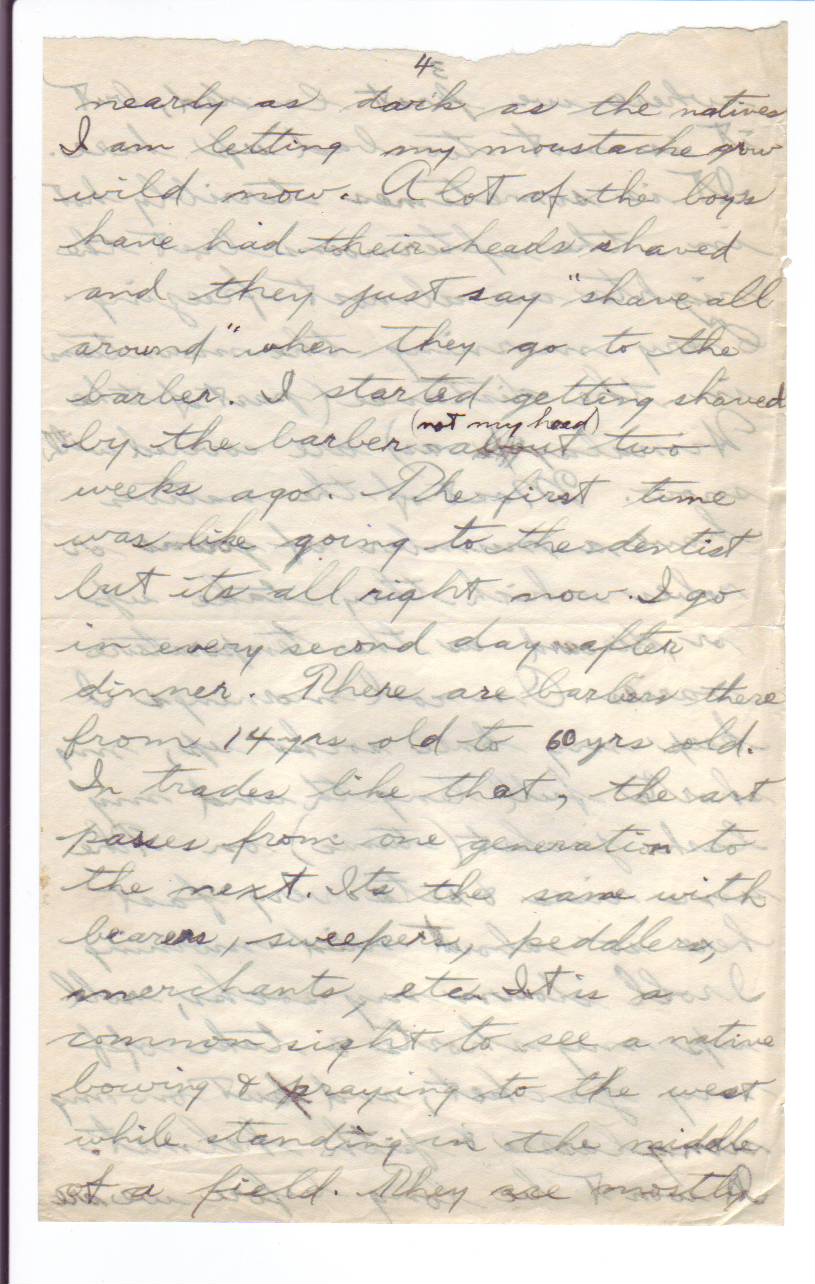 4
nearly as dark as the natives
I am letting my moustache grow
wild now. A lot of the boys
have had their heads shaved
and they just say "shave all
around" when they go to the
barber. I started getting shaved
(not my head)
by the barber about two
weeks ago. The first time
was like going to the dentist
but its all right now. I go
in every second day after
dinner. There are barbers there
from 14 yrs old to 60 yrs old.
In trades like that, the art
passes from one generation to
the next. Its the same with
bearers, sweepers, peddlers,
merchants, etc. It is a
common sight to see a native
bowing & praying to the west
while standing in the middle
of a field. They are mostly